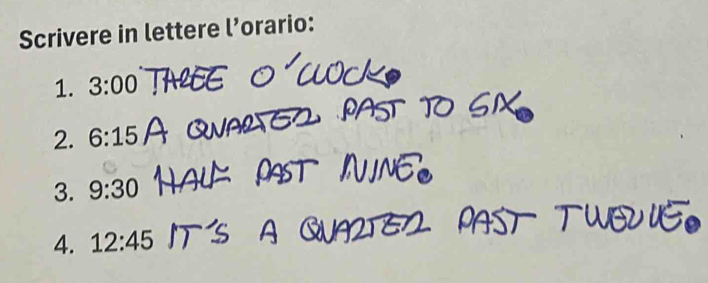 Scrivere in lettere l'orario:
1. 3:00 THREE O'CLOCK.
2. 6:15 A QUARTER PAST TO SIX.
3. 9:30 HALF PAST NINE.
4. 12:45 IT'S A QUARTER PAST TWELVE.